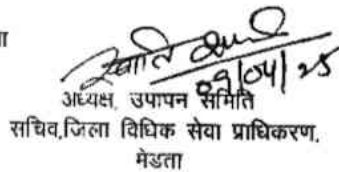 ा
स्वाति शर्मा
09/04/25
अध्यक्ष, उपापन समिति
सचिव,जिला विधिक सेवा प्राधिकरण,
मेडता